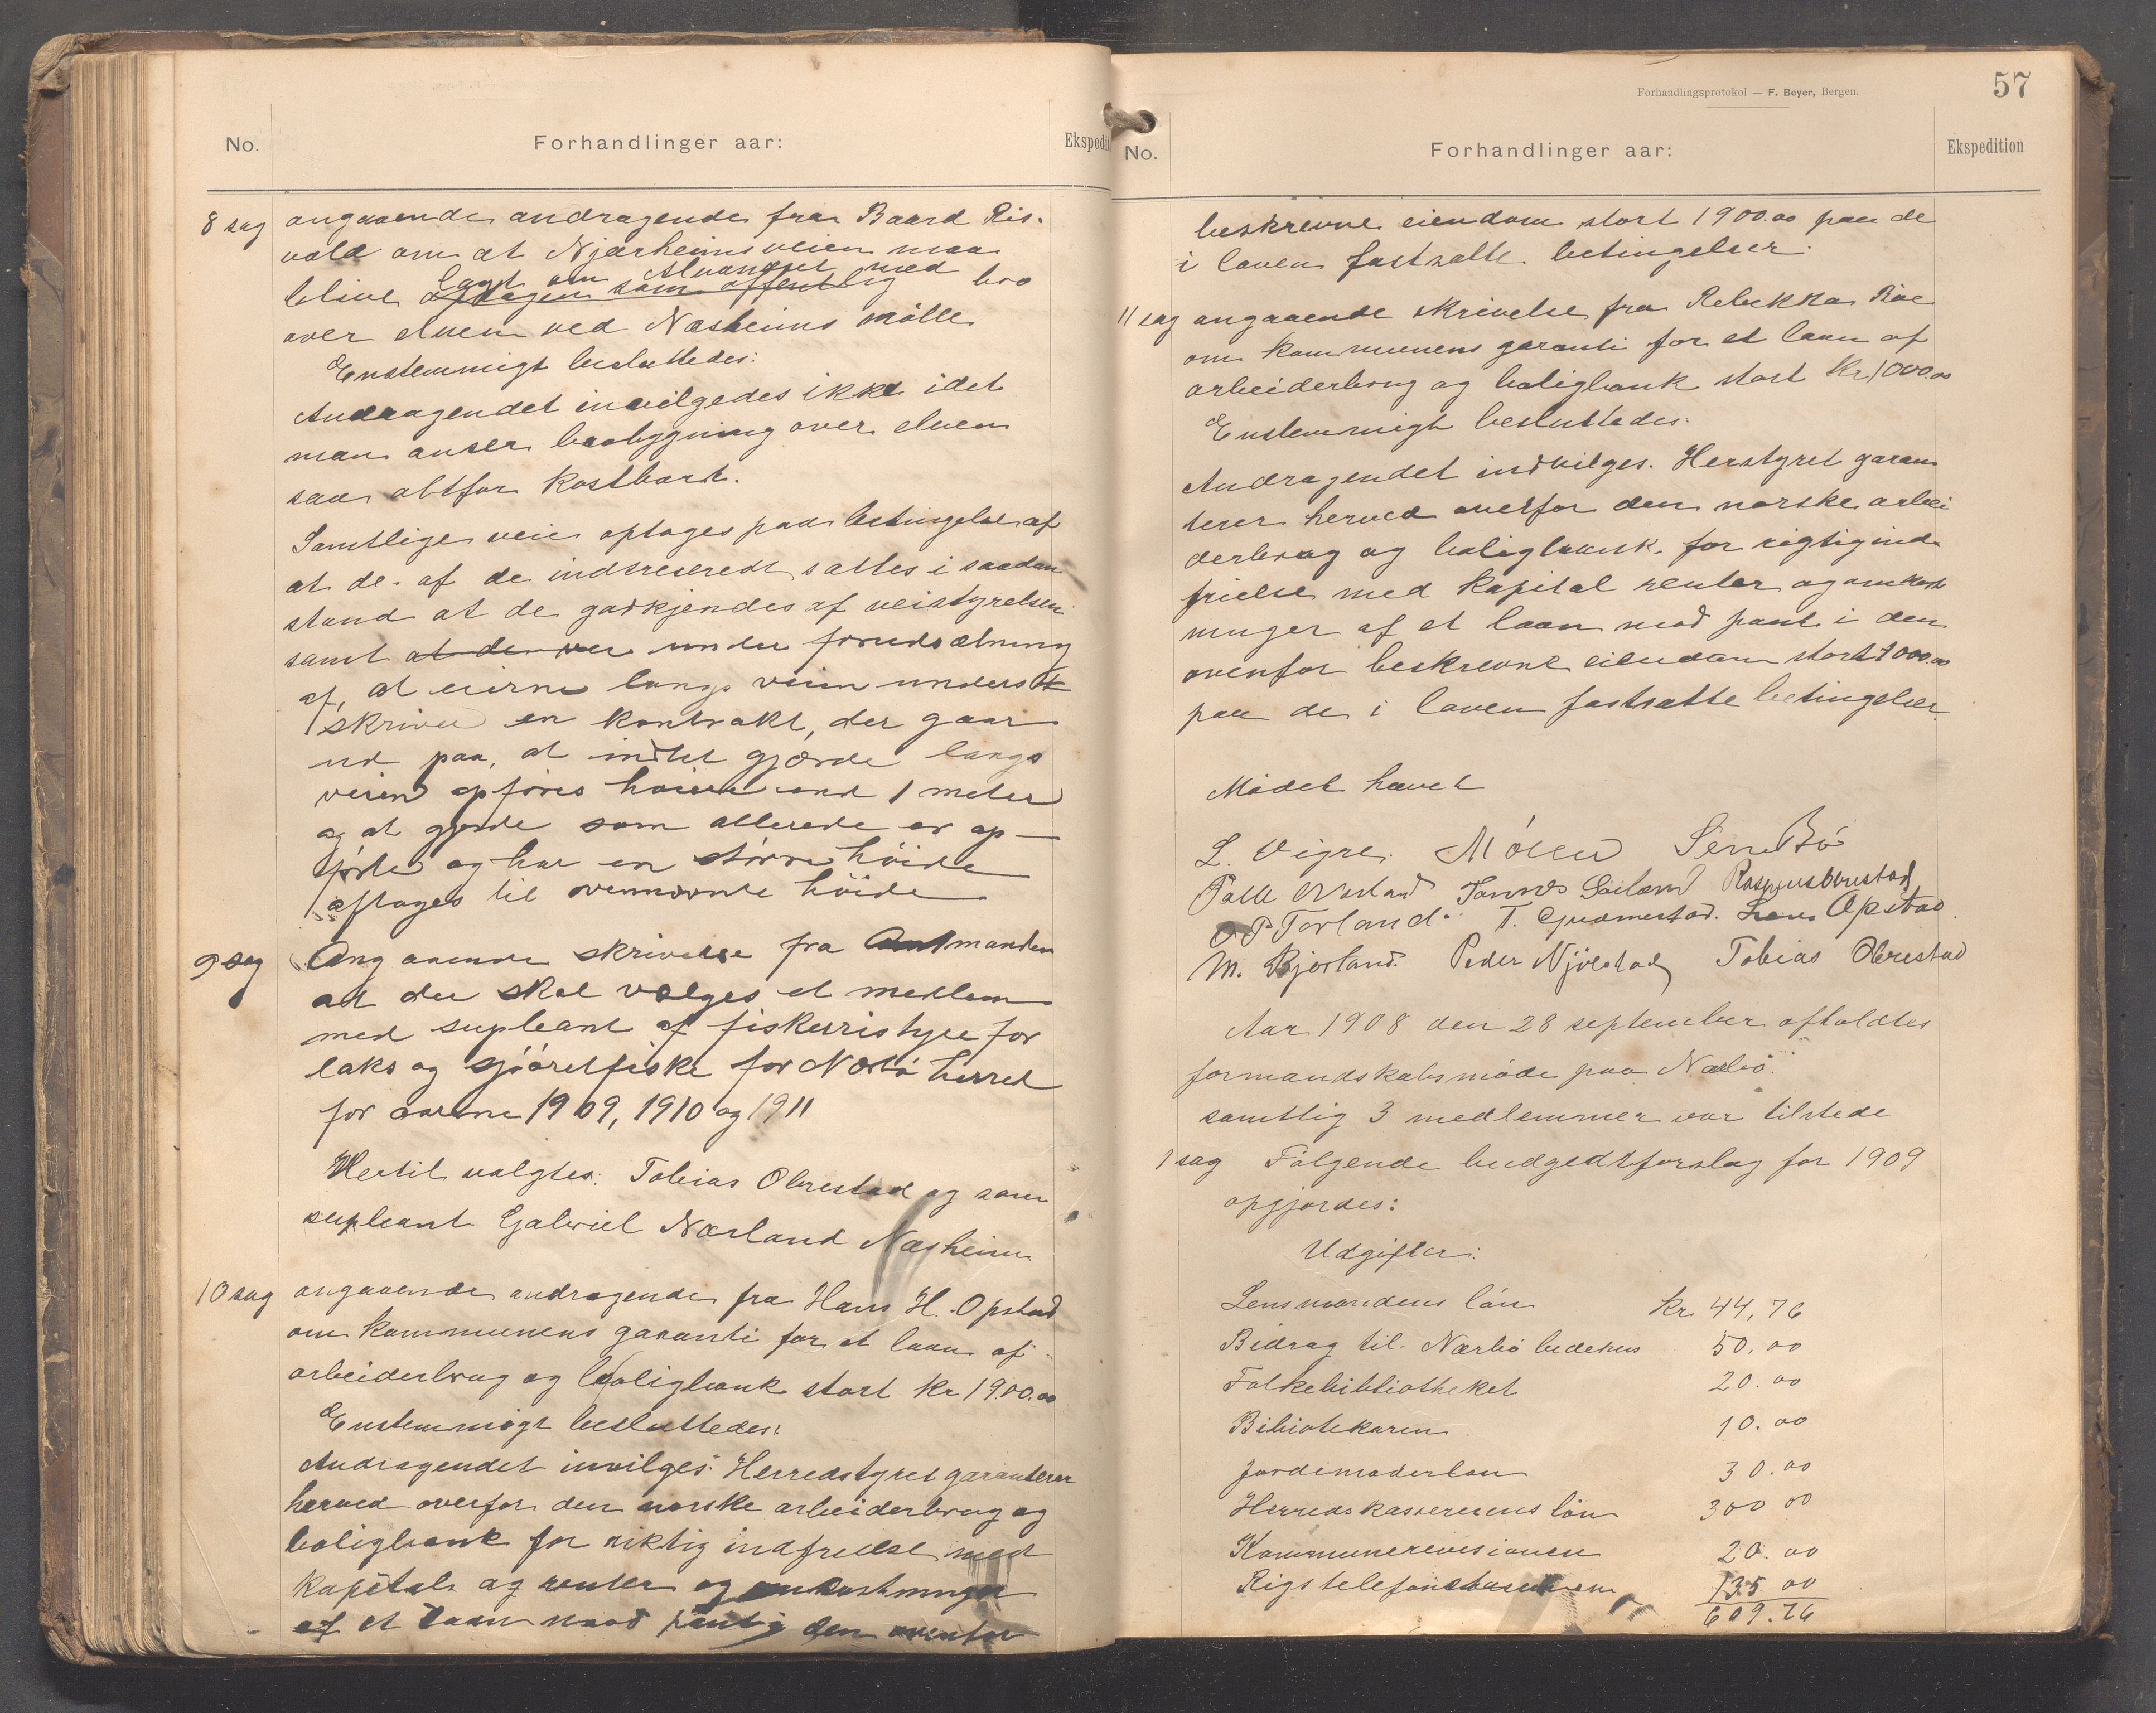 No.
Forhandlinger aar:
Ekspedit
8 sag angaaende andragende fra Baard Ris-
vold om at Njærheimsveien maa
lagt om Alvanget med
blive optagen som offentlig bro
over elven ved Næsheims mölle
Enstemmigt besluttedes:
Andragendet invilgedes ikke idet
man anser brobygning over elven
saa altfor kostbart.
Samtlige veie optages paa betingelse af
at de af de indtreseredt sættes i saadan
stand at de godkjendes af veistyrelsen
samt at de vee under forudsætning
af, at eierne langs veien unders
skriver en kontrakt, der gaar
ud paa, at indtet gjærde langs
veien opföres höiere end 1 meter
og at gjerde som allerede er op-
förte og har en större höide
aftages til ovennævnte höide
9 sag Angaaende skrivelse fra Amtmanden
at der skal vælges et medlem
med supleant af fiskeristyre for
laks og sjöörretfiske for Nærbö herred
for aarene 1909, 1910 og 1911
Hertil valgtes: Tobias Obrestad og som
supleant Gabriel Nærland Næsheim
10 sag angaaende andragende fra Hans H. Opstad
om kommunens garanti for et laan af
arbeiderbrug og boligbank stort kr 1900.00
Enstemmigt besluttedes:
Andragendet invilges: Herredstyret garanterer
herved overfor den norske arbeiderbrug og
boligbank for riktig indfrielse med
kapital og renter og omkostninger
af et laan mod pant i den ovenfor
Forhandlingsprotokol — F. Beyer, Bergen.
57
No.
Forhandlinger aar:
Ekspedition
beskrevne eiendom stort 1900.00 paa de
i loven fastsatte betingelser.
11 sag angaaende skrivelse fra Rebekka Roe
om kommunens garanti for et laan af
arbeiderbrug og boligbank stort Kr 1000.00
Enstemmigt besluttedes:
Andragendet indvilges. Herstyret garan
terer herved overfor den norske arbei
derbrug og boligbank for rigtig ind
frielse med kapital renter og omkost
ninger af et laan mod pant i den
ovenfor beskrevne eiendom stort 1000.00
paa de i loven fastsatte betingelser
Mödet hævet
L. Vigre. Möller Sem Bö
Palle Nærland Tønnes Rasmus Obrestad
O P Torland. T. Gudmestad. Hans Opstad.
M. Bjorland. Peder Njölstad Tobias Obrestad
Aar 1908 den 28 september afholdtes
formandskabsmöde paa Nærbö.
samtlig 3 medlemmer var tilstede
1 sag Fölgende budgedtforslag for 1909
opgjordes:
Udgifter:
Lensmandens lön kr 44,76
Bidrag til Nærbö bedehus 50.00
Folkebibliotheket 20.00
Bibiotekaren 10.00
Jordemoderlön 30.00
Herredskassererens lön 300 00
Kommunerevisionen 20.00
Rigstelefon 135 00
609.76